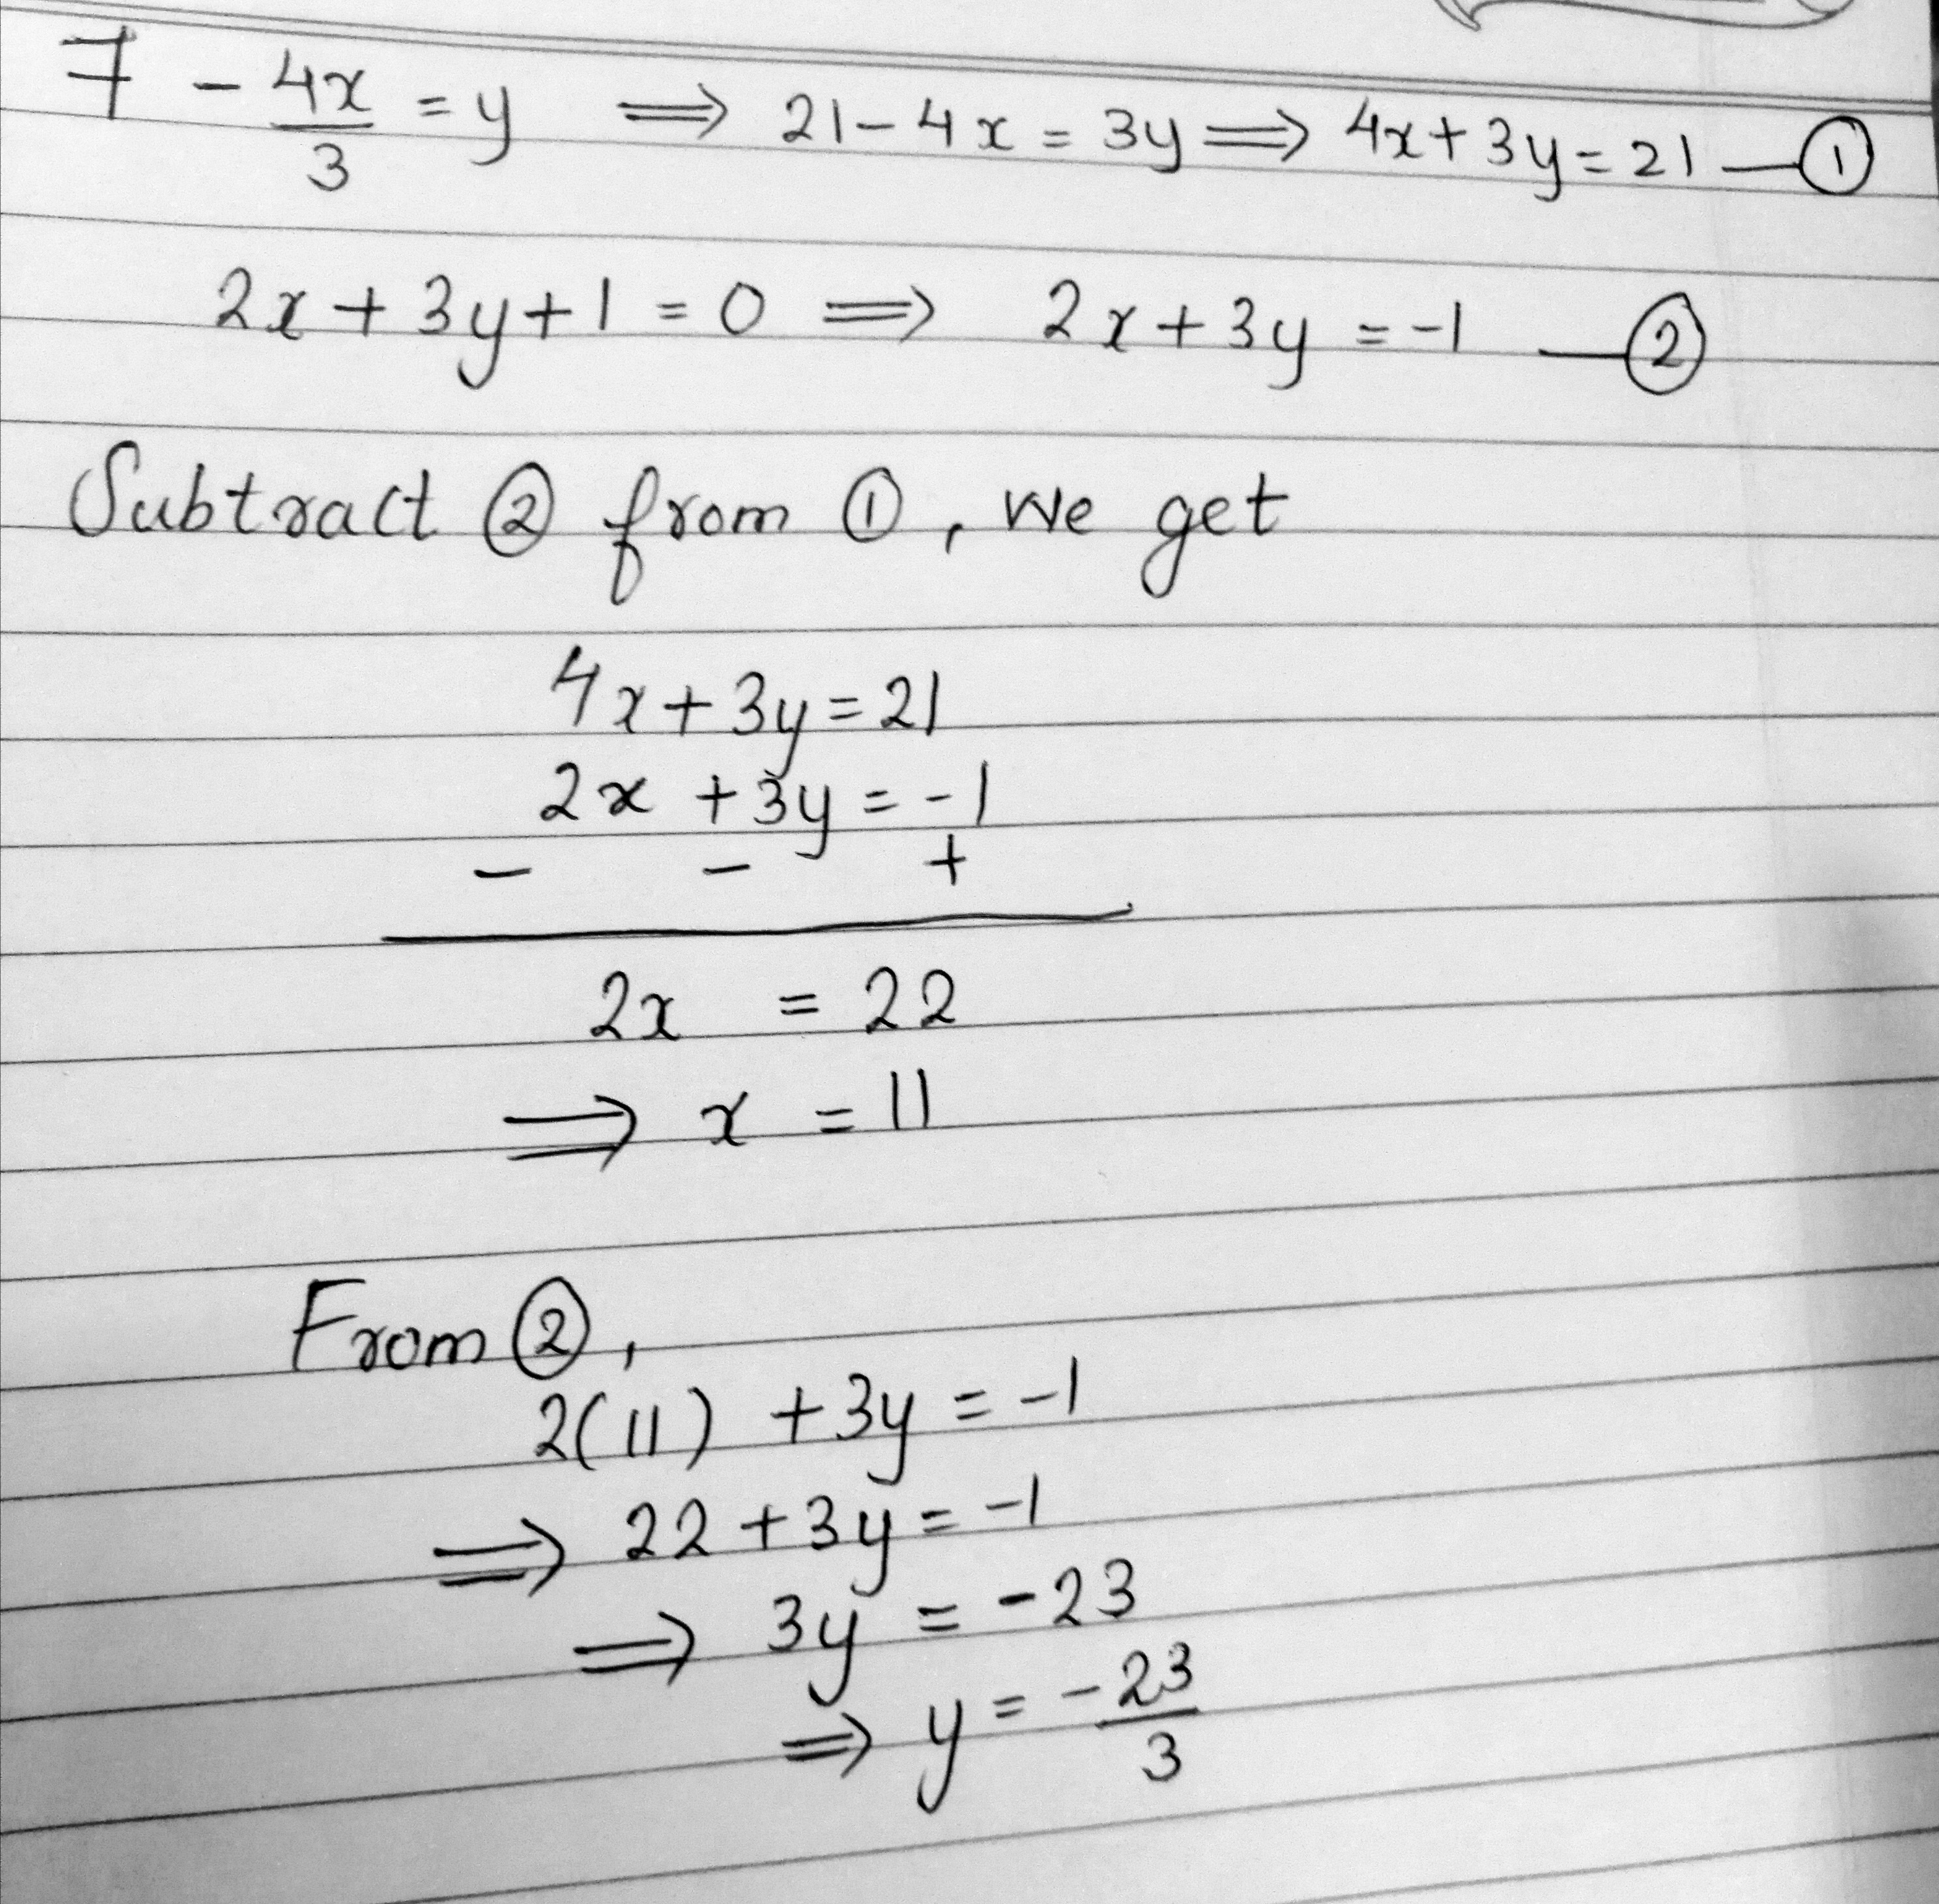 7 - 4x/3 = y ⟹ 21 - 4x = 3y ⟹ 4x + 3y = 21 — ①
2x + 3y + 1 = 0 ⟹ 2x + 3y = -1 — ②
Subtract ② from ①, we get
4x + 3y = 21
2x + 3y = -1
- - +
2x = 22
⟹ x = 11
From ②,
2(11) + 3y = -1
⟹ 22 + 3y = -1
⟹ 3y = -23
⟹ y = -23/3